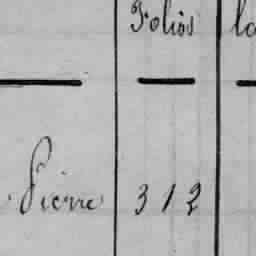 Folios
Pierre 312